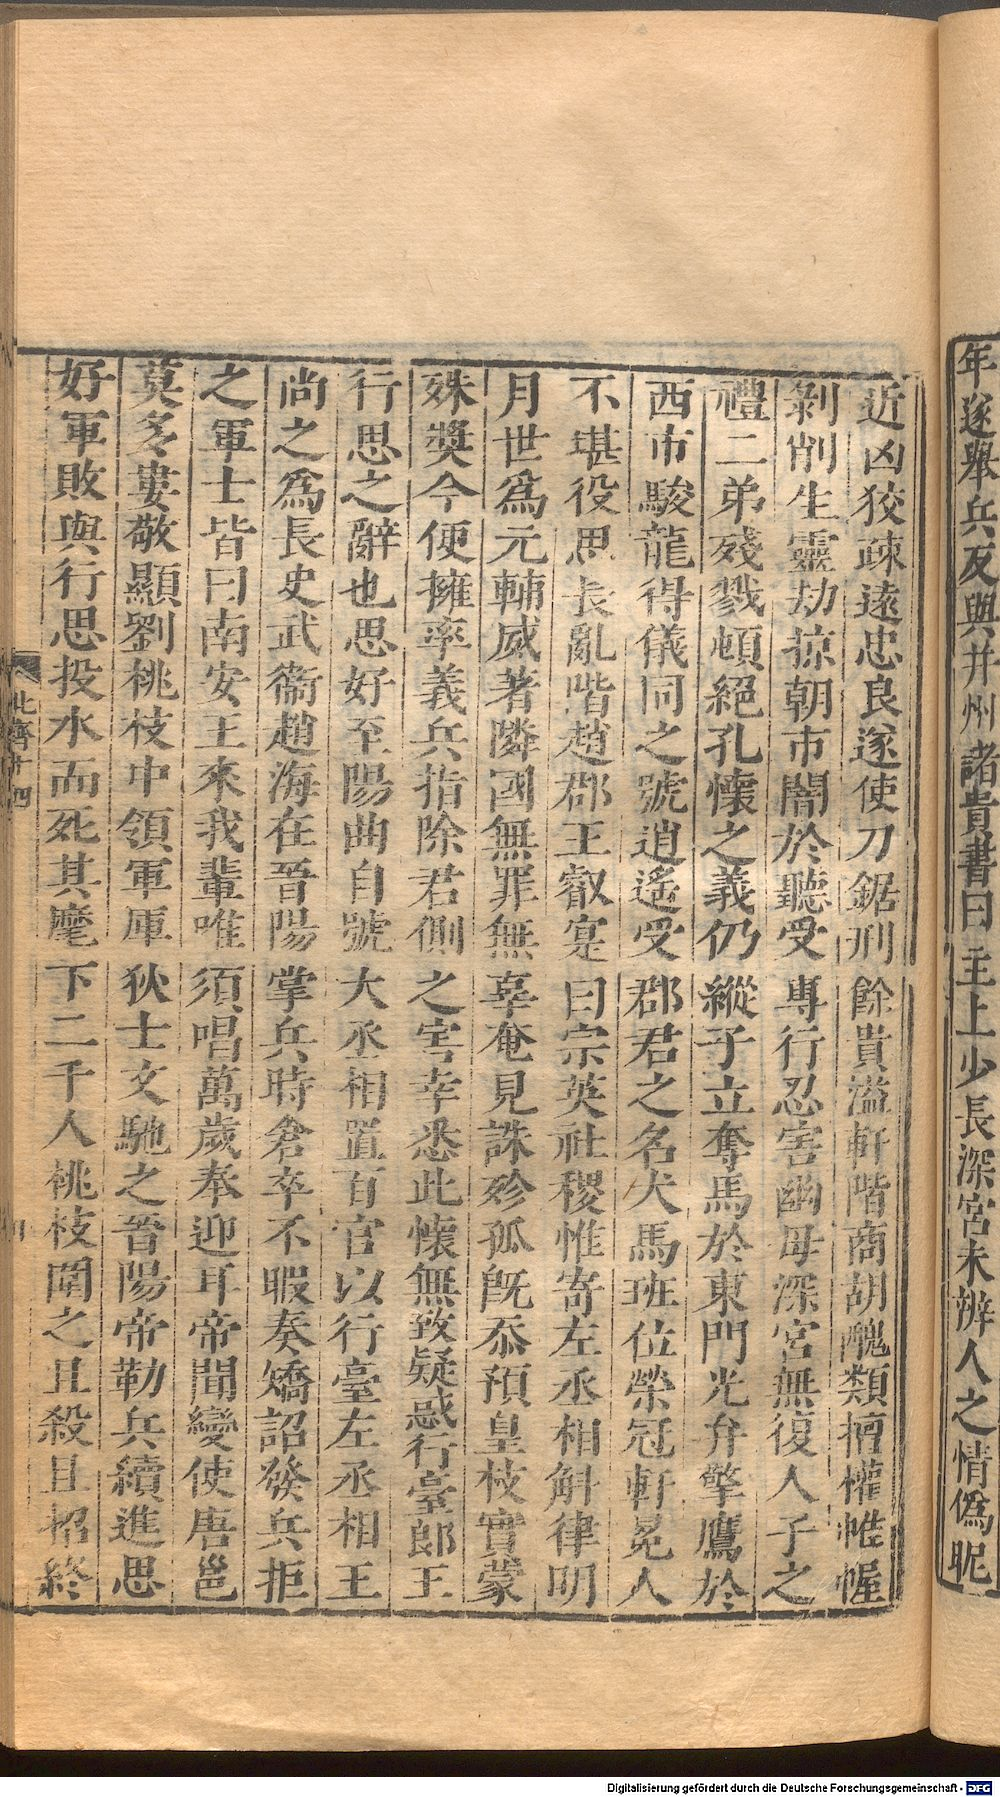 年遂舉兵反與并州諸貴書曰主上少長深宮未辨人之情僞昵
近凶狡疎遠忠良遂使刀鋸刑餘貴溢軒階商胡醜類擅權帷幄
剝削生靈劫掠朝市闇於聽受專行忍害幽母深宮無復人子之
禮二弟殘戮頓絕孔懷之義仍縱子立奪馬於東門光弁擎鷹於
西市駮龍得儀同之號逍遙受郡君之名犬馬班位榮冠軒冕人
不堪役思長亂階趙郡王叡寔曰宗英社稷惟寄左丞相斛律明
月世爲元輔威著隣國無罪無辜奄見誅殄孤旣忝預皇枝實蒙
殊獎今便擁率義兵指除君側之害幸悉此懷無致疑惑行臺郎王
行思之辭也思好至陽曲自號大丞相置百官以行臺左丞相王
尚之爲長史武衞趙海在晉陽掌兵時倉卒不暇奏矯詔發兵拒
之軍士皆曰南安王來我輩唯須唱萬歲奉迎耳帝聞變使唐邕
莫多婁敬顯劉桃枝中領軍庫狄士文馳之晉陽帝勒兵續進思
好軍敗與行思投水而死其麾下二千人桃枝圍之且殺且招終
北齊十四
Digitalisierung gefördert durch die Deutsche Forschungsgemeinschaft - DFG